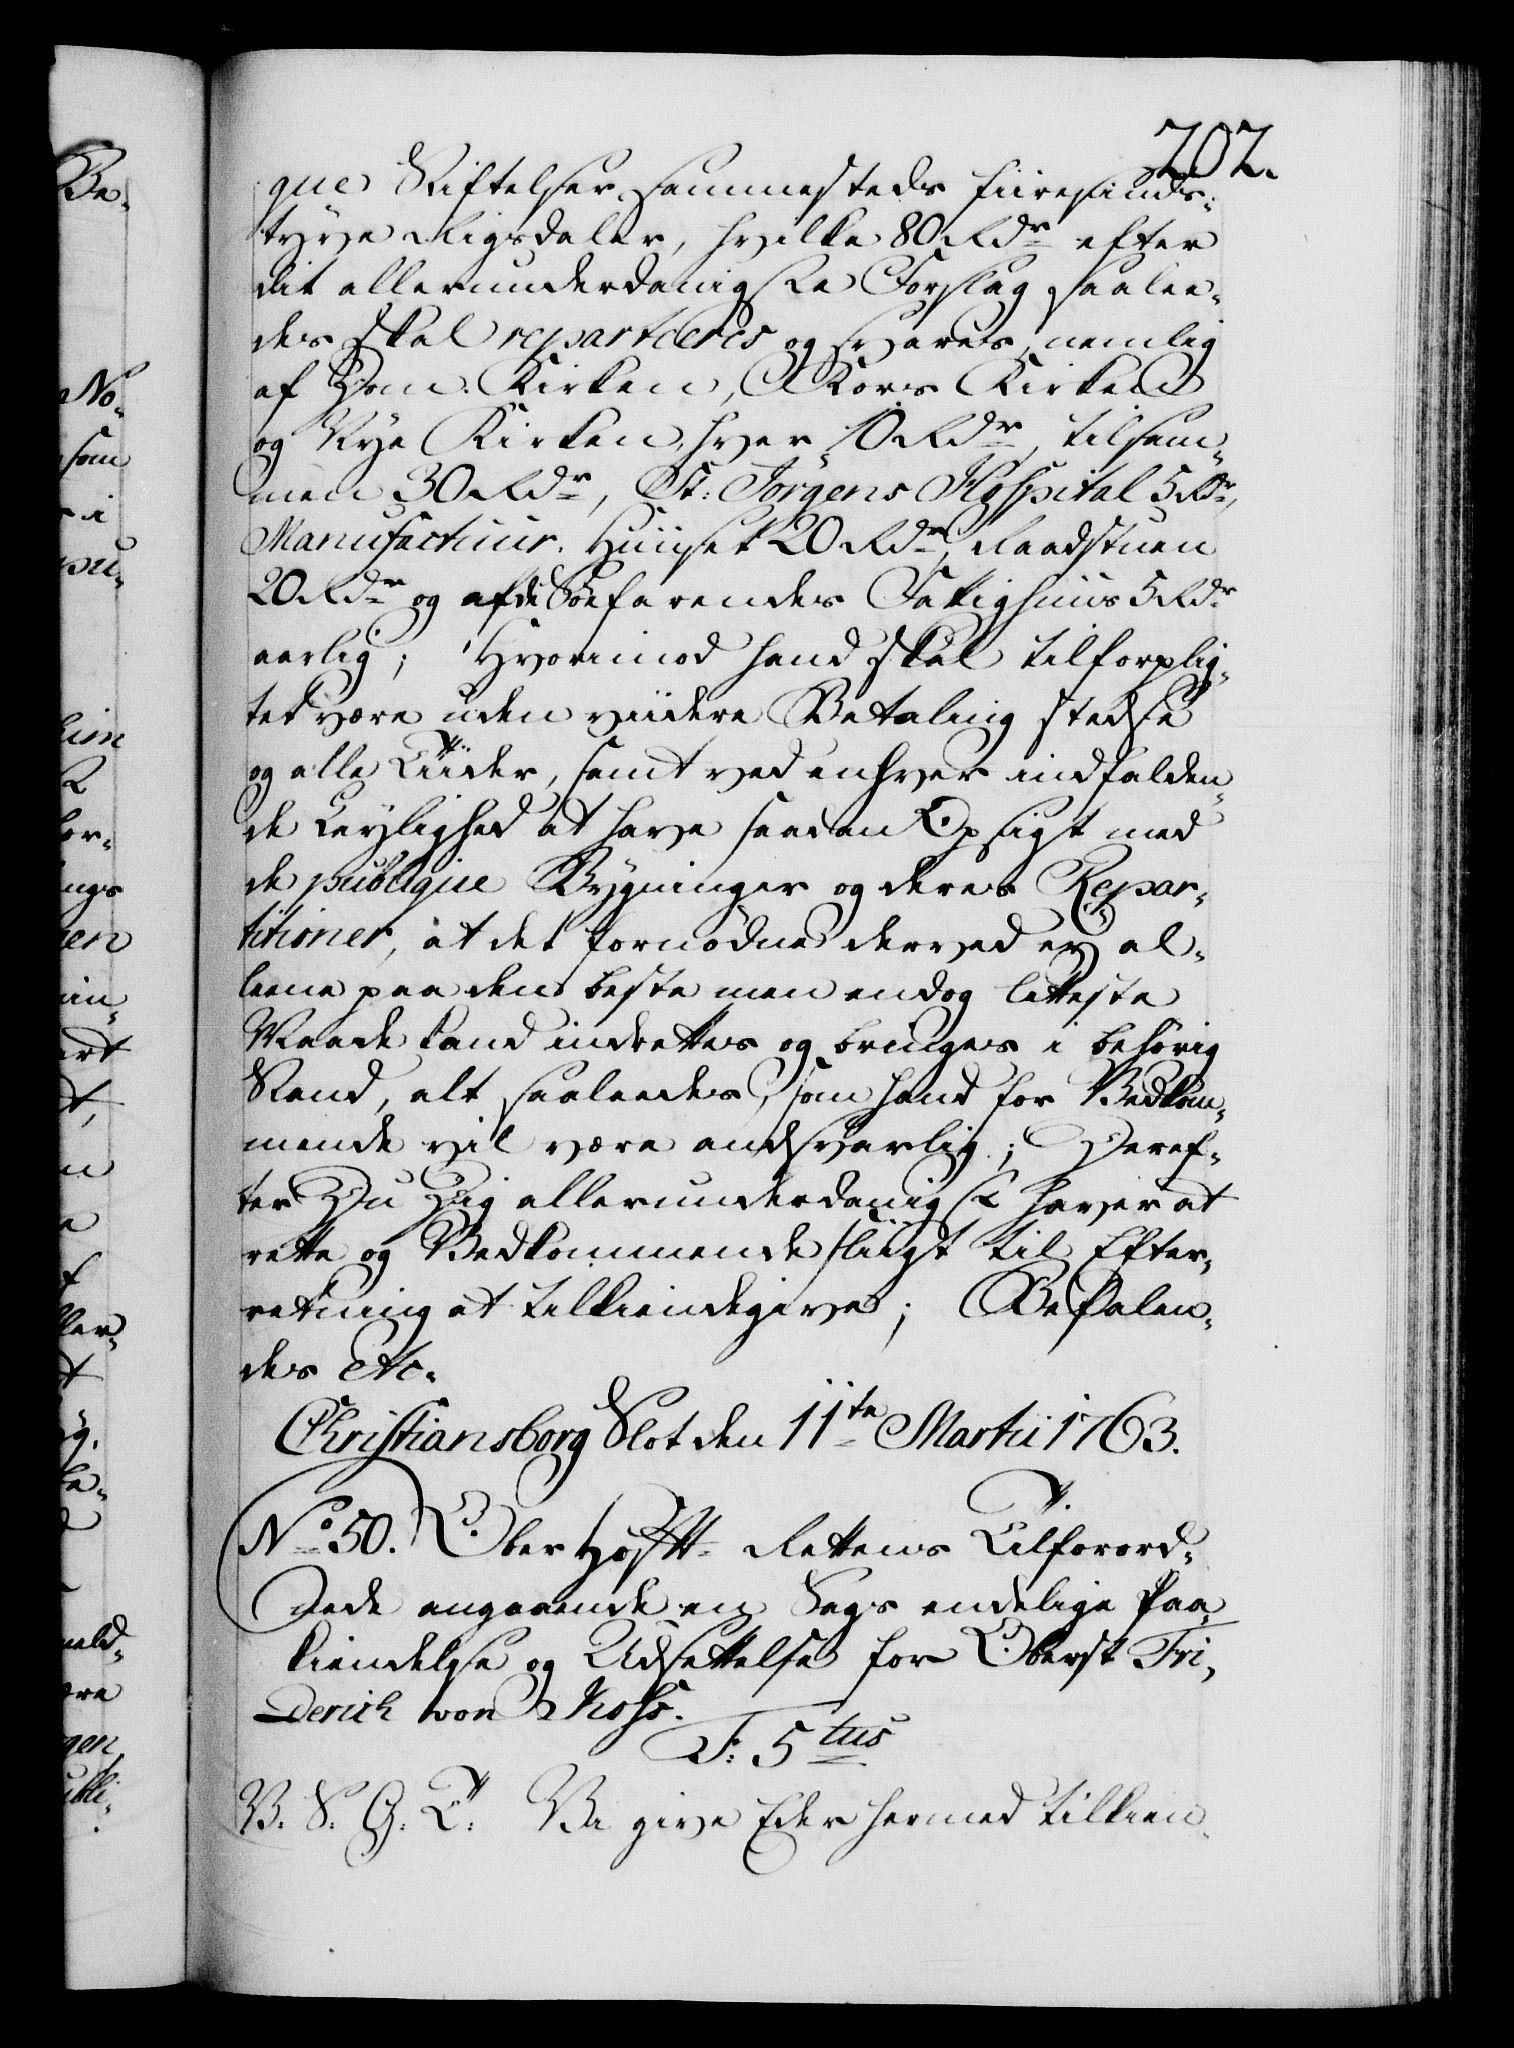 202.
que Stiftelser sammesteds fiiresinds-
tyve Rigsdaler, hvilke 80 Rdr efter
dit allerunderdanigste Forslag saalee-
des skal reparteres og svares, nemlig
af Dom-Kirken, Kors Kirken
og Nye Kirken, hver 10 Rdr, tilsam-
men 30 Rdr, St: Jörgens Hospital 5 Rdr,
Manufactuur-Huuset 20 Rdr, Raadstuen
20 Rdr og af de Söefarendes Fattighuus 5 Rdr
aarlig; Hvorimod hand skal tilforplig-
tet være uden viidere Betaling stedse
og alle Tiider, samt ved enhver indfalden-
de Leylighed at have saadan Opsigt med
de publique Bygninger og deres Repar-
titioner, at det fornödne derved ey al-
leene paa den beste men endog letteste
Maade kand indrettes og bringes i behörig
Stand, alt saaleedes, som hand for Vedkom-
mende vil være andsvarlig; Deref-
ter Du Dig allerunderdanigst haver at
rette og Vedkommende sligt til Efter-
retning at tilkiendegive; Befalen-
des etc.
Christiansborg Slot den 11te Martii 1763.
No 50. Ober Hoff-Rettens Tilforord-
nede angaaende en Sags endelige Paa-
kiendelse og Udsettelse for Oberst Fri-
derich von
F: 5tus
V. S. G. T. Vi give Eder hermed tilkien-
Be-
No-
som
i
pu-
lim
for-
ings
en
ert
t,
n
e
ller-
t
ke-
meld-
ære
gen
ubli-